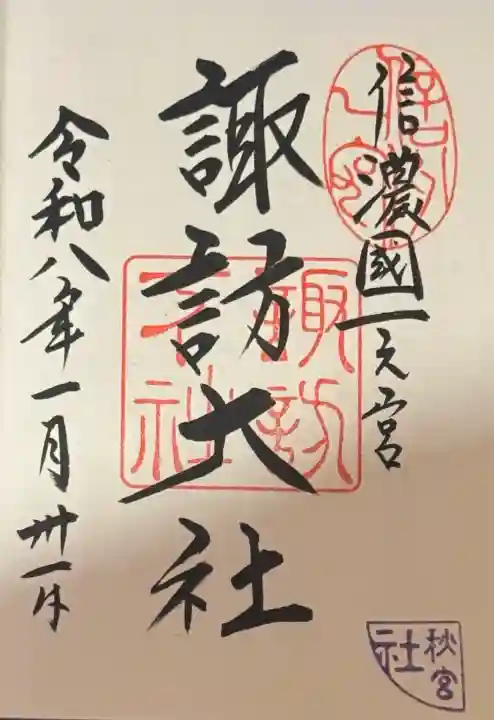 信濃國一之宮
諏訪大社
令和八年一月卅一日
諏訪
大社
秋宮
社